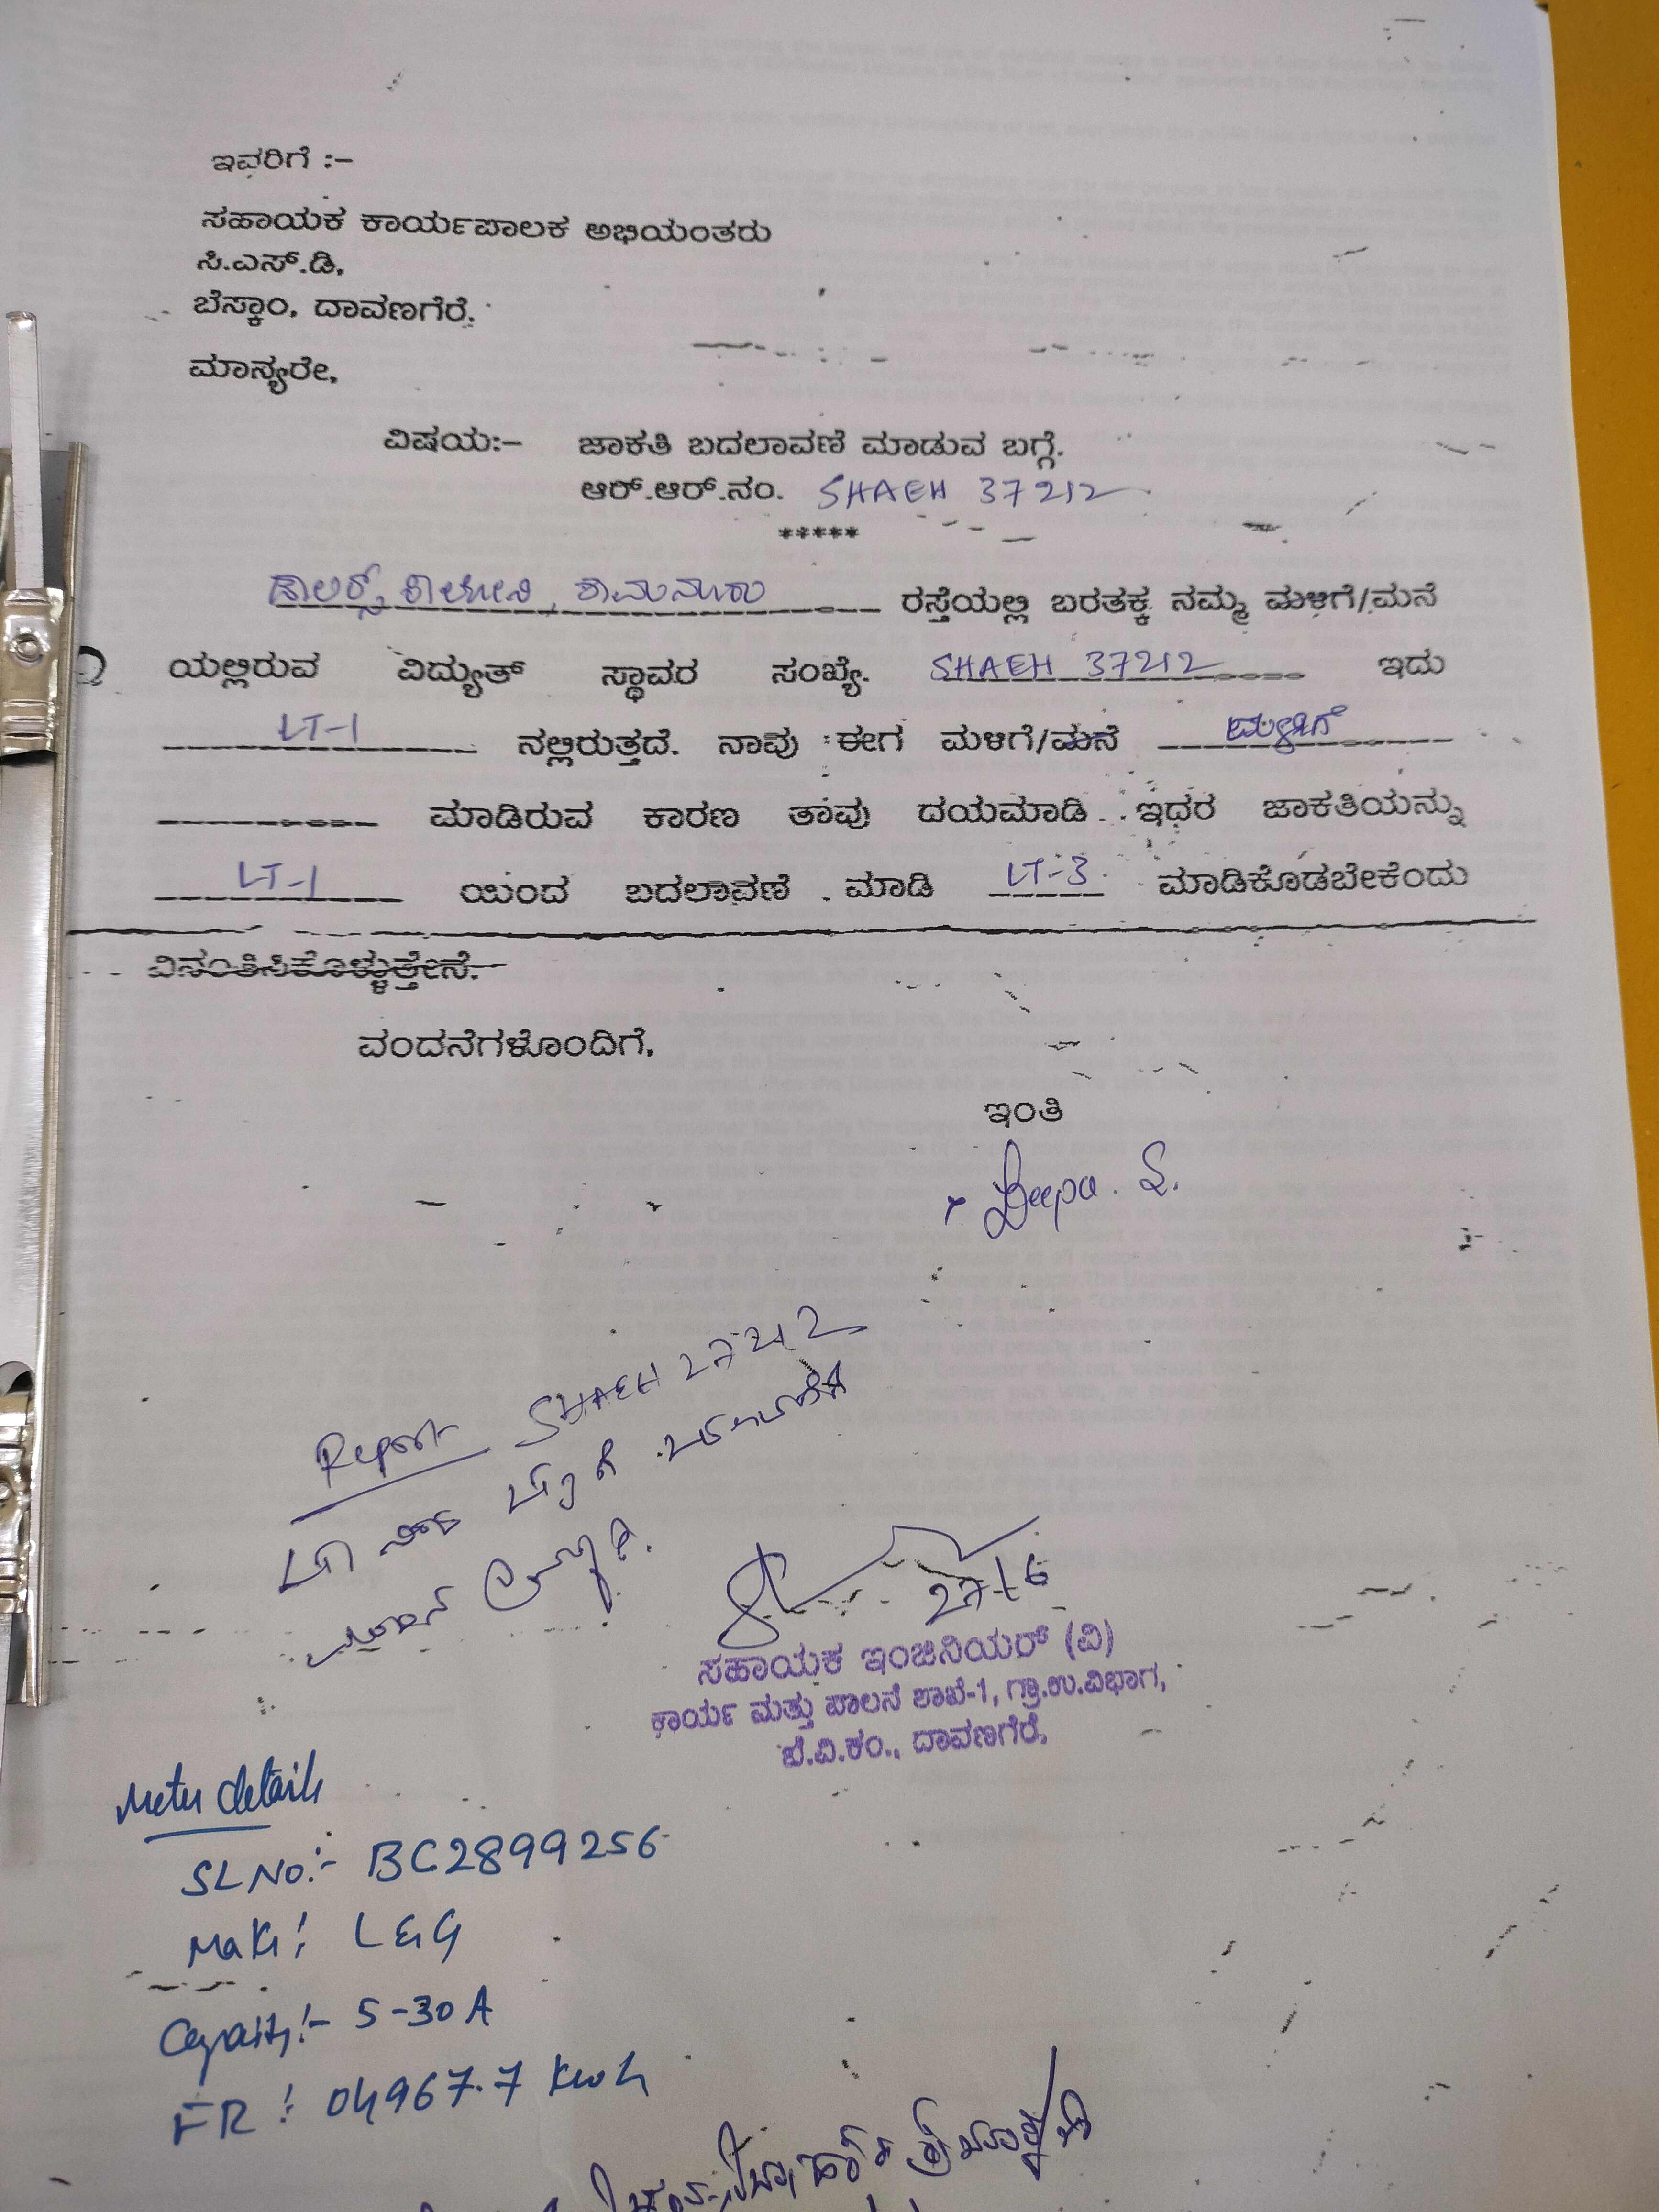 ಇವರಿಗೆ :–
ಸಹಾಯಕ ಕಾರ್ಯಪಾಲಕ ಅಭಿಯಂತರು
ಸಿ.ಎಸ್.ಡಿ,
ಬೆಸ್ಕಾಂ, ದಾವಣಗೆರೆ.
ಮಾನ್ಯರೇ,
ವಿಷಯ:– ಜಾಕತಿ ಬದಲಾವಣೆ ಮಾಡುವ ಬಗ್ಗೆ.
ಆರ್.ಆರ್.ನಂ. SHAEH 37212
*****
ಡಾಲರ್ಸ್ ಕಾಲೋನಿ, ಶಾಮನೂರು ರಸ್ತೆಯಲ್ಲಿ ಬರತಕ್ಕ ನಮ್ಮ ಮಳಿಗೆ/ಮನೆ
ಯಲ್ಲಿರುವ ವಿದ್ಯುತ್ ಸ್ಥಾವರ ಸಂಖ್ಯೆ. SHAEH 37212 ಇದು
LT-1 ನಲ್ಲಿರುತ್ತದೆ. ನಾವು ಈಗ ಮಳಿಗೆ/ಮನೆ
ಮಾಡಿರುವ ಕಾರಣ ತಾವು ದಯಮಾಡಿ ಇದರ ಜಾಕತಿಯನ್ನು
LT-1 ಯಿಂದ ಬದಲಾವಣೆ ಮಾಡಿ LT-3 ಮಾಡಿಕೊಡಬೇಕೆಂದು
ವಿನಂತಿಸಿಕೊಳ್ಳುತ್ತೇನೆ.
ವಂದನೆಗಳೊಂದಿಗೆ,
ಇಂತಿ
Deepa. S.
Report SHAEH 27212
27/6
ಸಹಾಯಕ ಇಂಜಿನಿಯರ್ (ವಿ)
ಕಾರ್ಯ ಮತ್ತು ಪಾಲನೆ ಶಾಖೆ-1, ಗ್ರಾ.ಉ.ವಿಭಾಗ,
ಬೆ.ವಿ.ಕಂ., ದಾವಣಗೆರೆ.
Meter details
SLNo:- BC2899256
Make: L&G
Capacity:- 5-30A
FR: 04967.7 Kwh